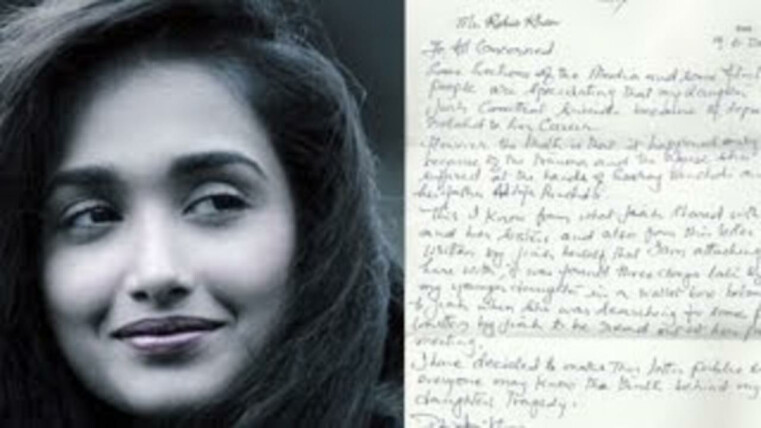 Rabia Khan
To All Concerned
Some Sections of the Media and some film
people are Speculating that my daughter
Jiah Committed Suicide because of
Related to her Career.
However the truth is that it happened only
because of the trauma and the abuse she
suffered at the hands of Sooraj Pancholi
his father Aditya Pancholi.
This I Know from what Jiah Shared with
and her sisters and also from this letter
written by Jiah herself that I am attaching
here with, it was found three days late by
my younger daughter in a wallet box
to Jiah when she was searching for some
by Jiah to be read out at her
meeting.
I have decided to make this letter public
everyone may know the truth behind my
daughters Tragedy.